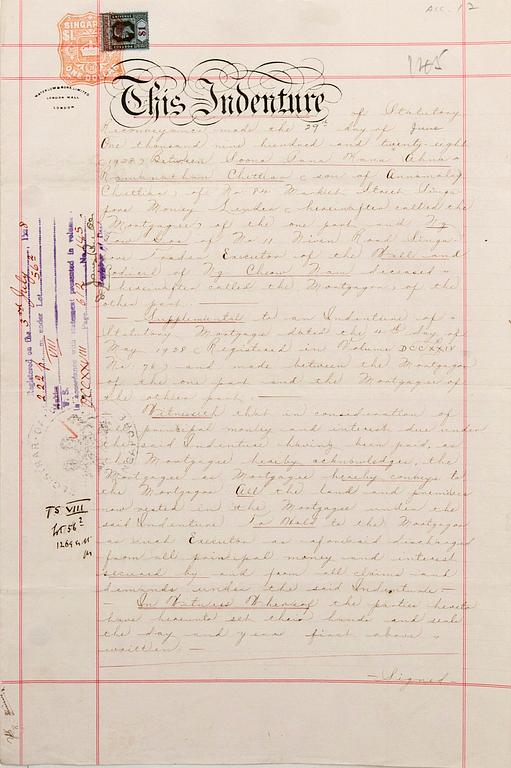 Acc. 12
1205
SINGAPORE
$1
ONE DOLLAR
$1
WATERLOW & SONS LIMITED
LONDON WALL
LONDON
This Indenture of Statutory
Reconveyance made the 29th day of June
One thousand nine hundred and twenty-eight
(1928) Between Soona Pana Kana Ahna
Ramanatham Chettiar (son of Annamalay
Chettiar) of No. 84 Market Street Singa-
pore Money Lender (hereinafter called the
Mortgagee) of the one part and Ng
of No. 11 Niven Road Singa-
pore Trader Executor of the Will and
Codicil of Ng Cheow deceased
(hereinafter called the Mortgagor) of the
other part —
— Supplemental to an Indenture of
Statutory Mortgage dated the 4th day of
May 1928 (Registered in Volume DCCXXIV
No: 78) and made between the Mortgagor
of the one part and the Mortgagee of
the other part. —
Witnesseth that in consideration of
all principal money and interest due under
the said Indenture having been paid, as
the Mortgagee hereby acknowledges, the
Mortgagee as Mortgagee hereby conveys to
the Mortgagor All the land and premises
now vested in the Mortgagee under the
said Indenture To Hold to the Mortgagor
as such Executor as aforesaid discharged
from all principal money and interest
secured by and from all claims and
demands under the said Indenture —
— In Witness Whereof the parties hereto
have hereunto set their hands and seals
the day and year first above
written —
— Signed —
Registered on the 3rd July 1928
at 2.22 p.m. under Lot 56
VIII
in accordance with statement presented in volume
DCCXXIII Page 612 No. 145
TS VIII
Lot 56²